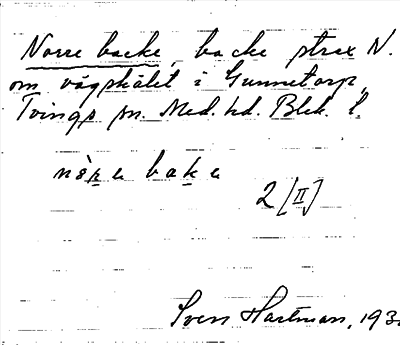 Norre backe, backe strax N.
om vägskälet i Gunnetorp,
Tvings sn. Med. hd. Blek. l.
backe
2 [II]
Sven Hartman, 193